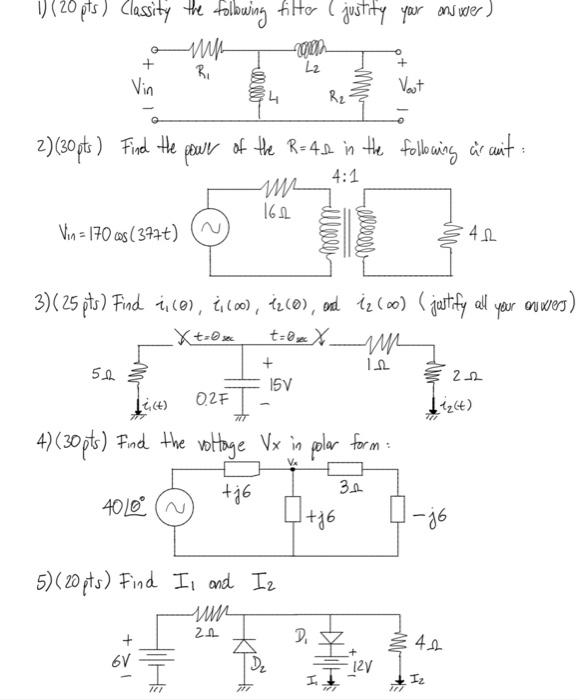 1) (20 pts) Classify the following filter (justify your answer)
+ R1 L2 +
Vin L1 R2 Vout
- -
2) (30 pts) Find the power of the R=4Ω in the following circuit :
4:1
16Ω
Vin = 170 cos(377t) 4Ω
3) (25 pts) Find i1(0), i1(∞), i2(0), and i2(∞) (justify all your answers)
t=0 sec t=0 sec
+ 1Ω
5Ω 15V 2Ω
i1(t) 0.2F - i2(t)
4) (30 pts) Find the voltage Vx in polar form :
Vx
+j6 3Ω
40∠0° +j6 -j6
5) (20 pts) Find I1 and I2
+ 2Ω D1 4Ω
6V + 12V
- D2 I1 - I2